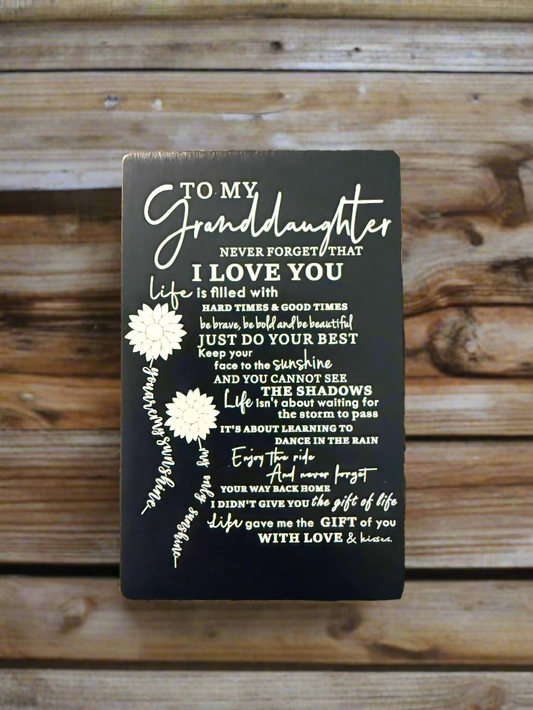 TO MY
Granddaughter
NEVER FORGET THAT
I LOVE YOU
life is filled with
HARD TIMES & GOOD TIMES
be brave, be bold and be beautiful
JUST DO YOUR BEST
Keep your
face to the sunshine
AND YOU CANNOT SEE
THE SHADOWS
Life Isn't about waiting for
the storm to pass
IT'S ABOUT LEARNING TO
DANCE IN THE RAIN
Enjoy the ride
And never forget
YOUR WAY BACK HOME
I DIDN'T GIVE YOU the gift of life
Life gave me the GIFT of you
WITH LOVE & kisses
you are my sunshine
my only sunshine